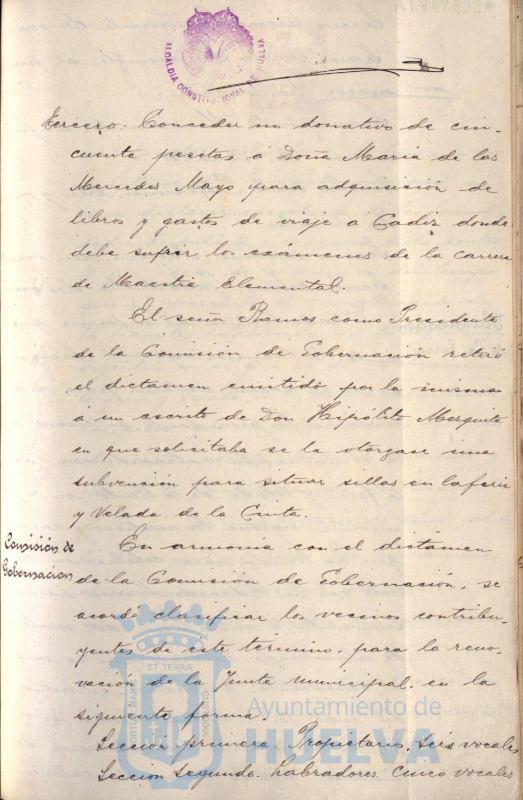 ALCALDIA CONSTITUCIONAL DE HUELVA
tercero. Conceder un donativo de cin-
cuenta pesetas á Doña María de las
Mercedes Mayo para adquisición de
libros y gastos de viaje á Cadiz donde
debe sufrir los exámenes de la carrera
de Maestra Elemental.
El señor Ramos como Presidente
de la Comisión de Gobernación retiró
el dictamen emitido por la misma
á un escrito de Don Hipólito Mezquita
en que solicitaba se le otorgase una
subvención para situar sillas en la feria
y Velada de la Cinta.
Comisión de
Gobernacion
En armonía con el dictámen
de la Comisión de Gobernación, se
acordó clasificar los vecinos contribu-
yentes de este término, para la reno-
vación de la Junta municipal, en la
siguiente forma.
Sección primera. Propietarios, Seis vocales
Sección Segunda. Labradores. Cinco vocales
ET TERRÆ
PORTUS MARIS
CUSTODIA
Ayuntamiento de
HUELVA